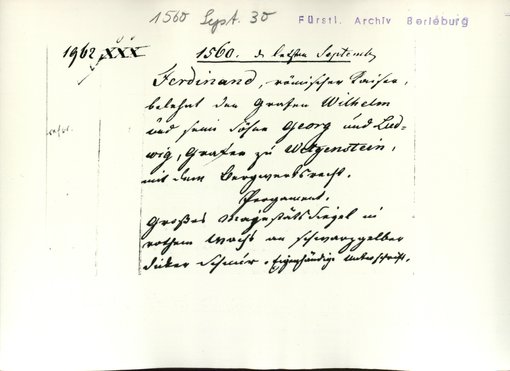 1560 Sept. 30 Fürstl. Archiv Berleburg
1962 XXX 1560. d. letzten Septemb.
Ferdinand, römischer Kaiser,
belehnt den Grafen Wilhelm
und seine Söhne Georg und Lud-
wig, Grafen zu Witgenstein,
mit dem Bergwerksrecht.
Pergament.
Großes Majestäts Siegel in
rothem Wachs an schwarzgelber
dicker Schnur. Eigenhändige Unterschrift.